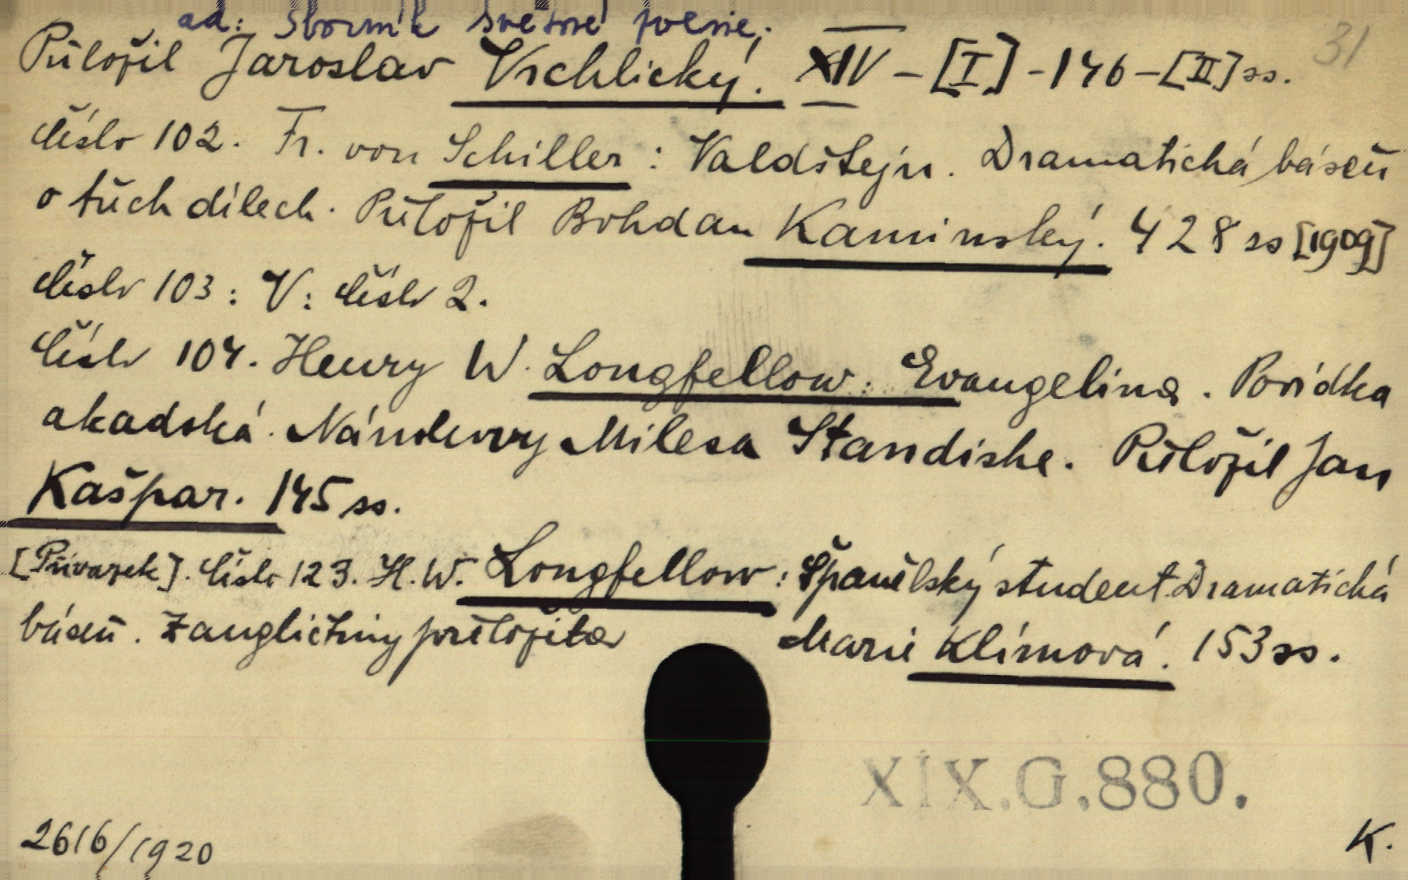 ad: Sborník světové poesie;
31
Přeložil Jaroslav Vrchlický. XIV – [I] - 146 – [II] ss.
Číslo 102. Fr. von Schiller: Valdštejn. Dramatická báseň
o třech dílech. Přeložil Bohdan Kaminský. 428 ss [1909]
Číslo 103: V: číslo 2.
Číslo 104. Henry W. Longfellow: Evangelina. Povídka
akadská. Námluvy Milesa Standishe. Přeložil Jan
Kašpar. 145 ss.
[Přívazek]. Číslo 123. H. W. Longfellow: Španělský student. Dramatická
báseň. Z angličtiny přeložila Marie Klímová. 153 ss.
XIX.G.880.
2616/1920
K.